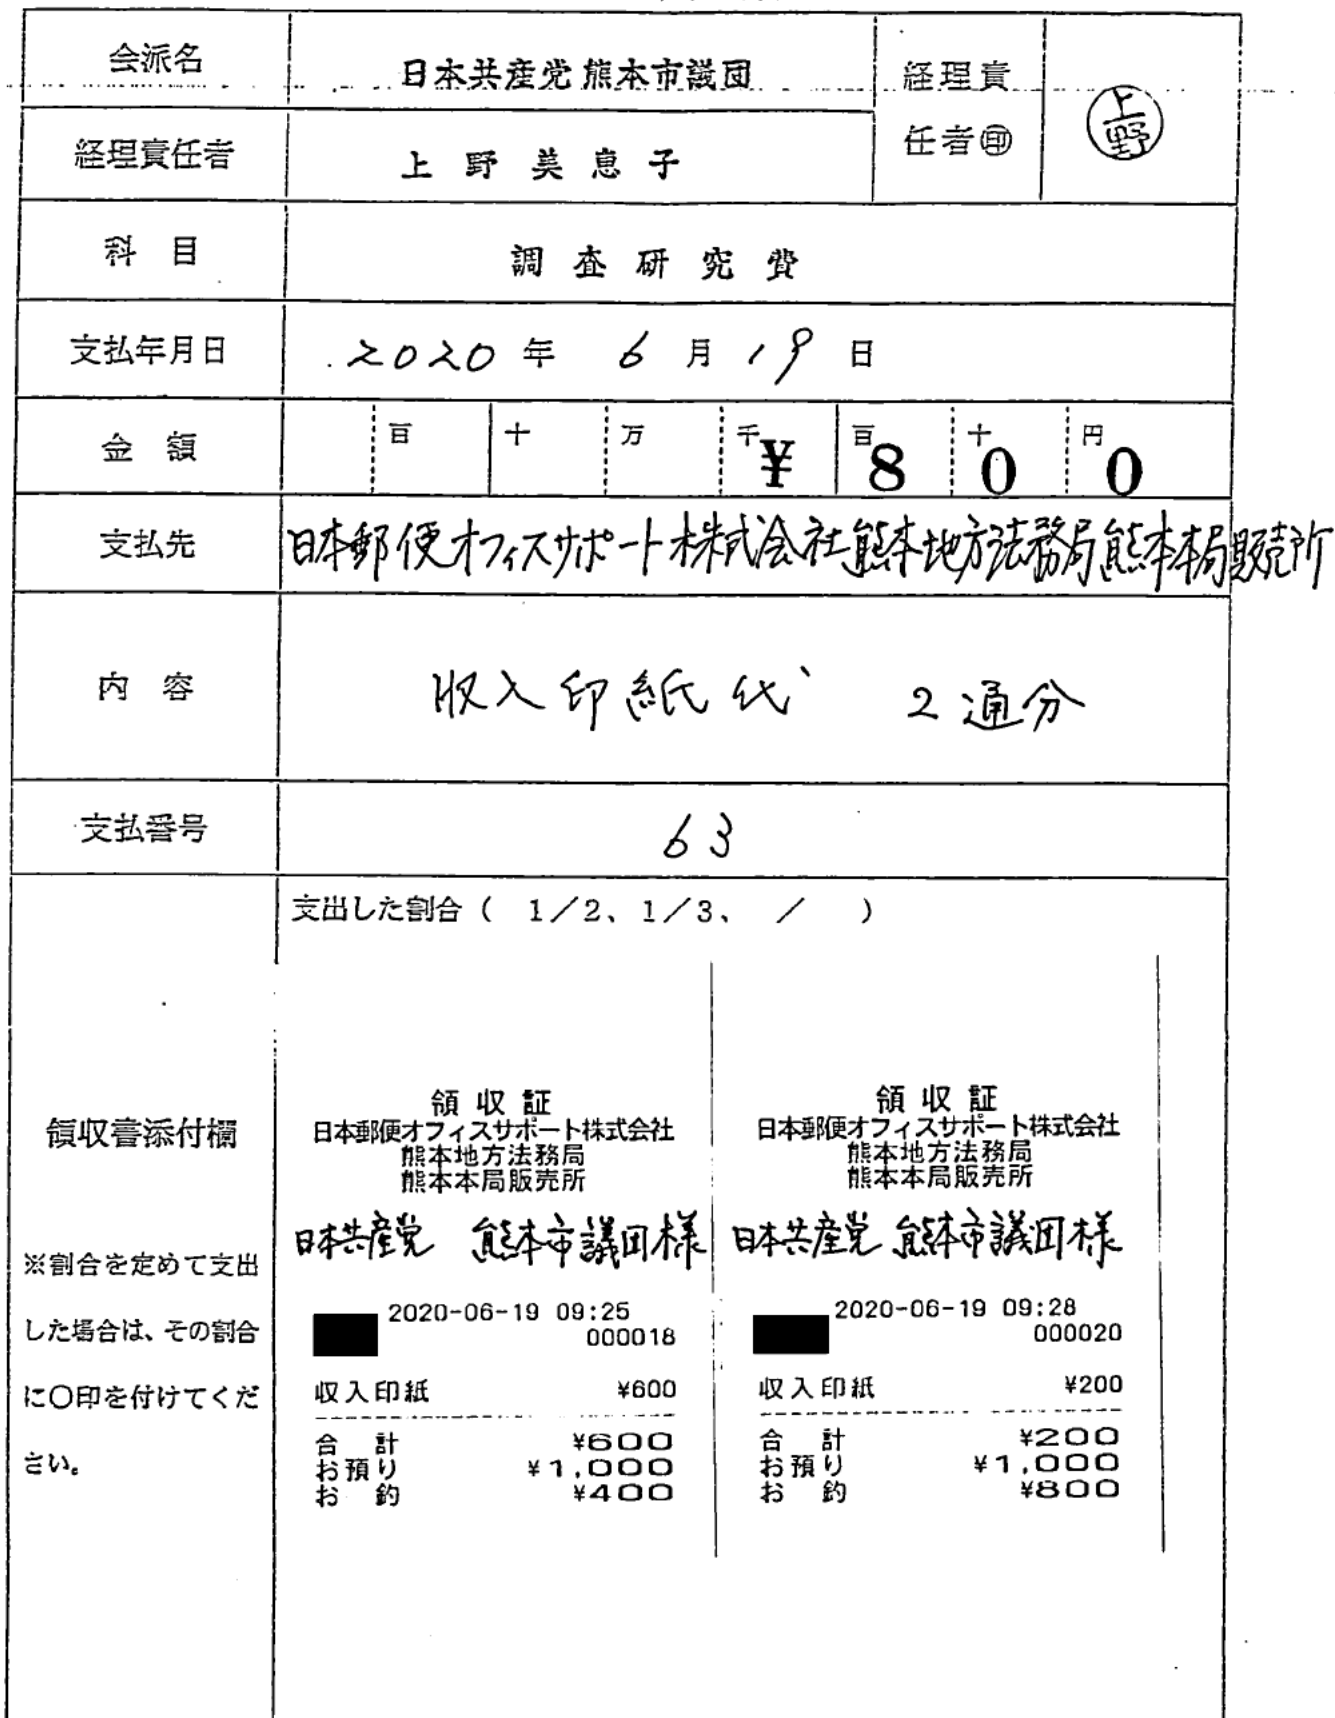 会派名 日本共産党熊本市議団 経理責任者㊞ 上野
経理責任者 上野美恵子
科目 調査研究費
支払年月日 2020年6月19日
金額 百 十 万 千 百 十 円 ¥800
支払先 日本郵便オフィスサポート株式会社熊本地方法務局熊本本局販売所
内容 収入印紙代 2通分
支払番号 63
支出した割合( 1/2、1/3、 / )
領収書添付欄
※割合を定めて支出
した場合は、その割合
に〇印を付けてくだ
さい。
領収証
日本郵便オフィスサポート株式会社
熊本地方法務局
熊本本局販売所
日本共産党 熊本市議団様
2020-06-19 09:25
000018
収入印紙 ¥600
合計 ¥600
お預り ¥1,000
お釣 ¥400
領収証
日本郵便オフィスサポート株式会社
熊本地方法務局
熊本本局販売所
日本共産党 熊本市議団様
2020-06-19 09:28
000020
収入印紙 ¥200
合計 ¥200
お預り ¥1,000
お釣 ¥800